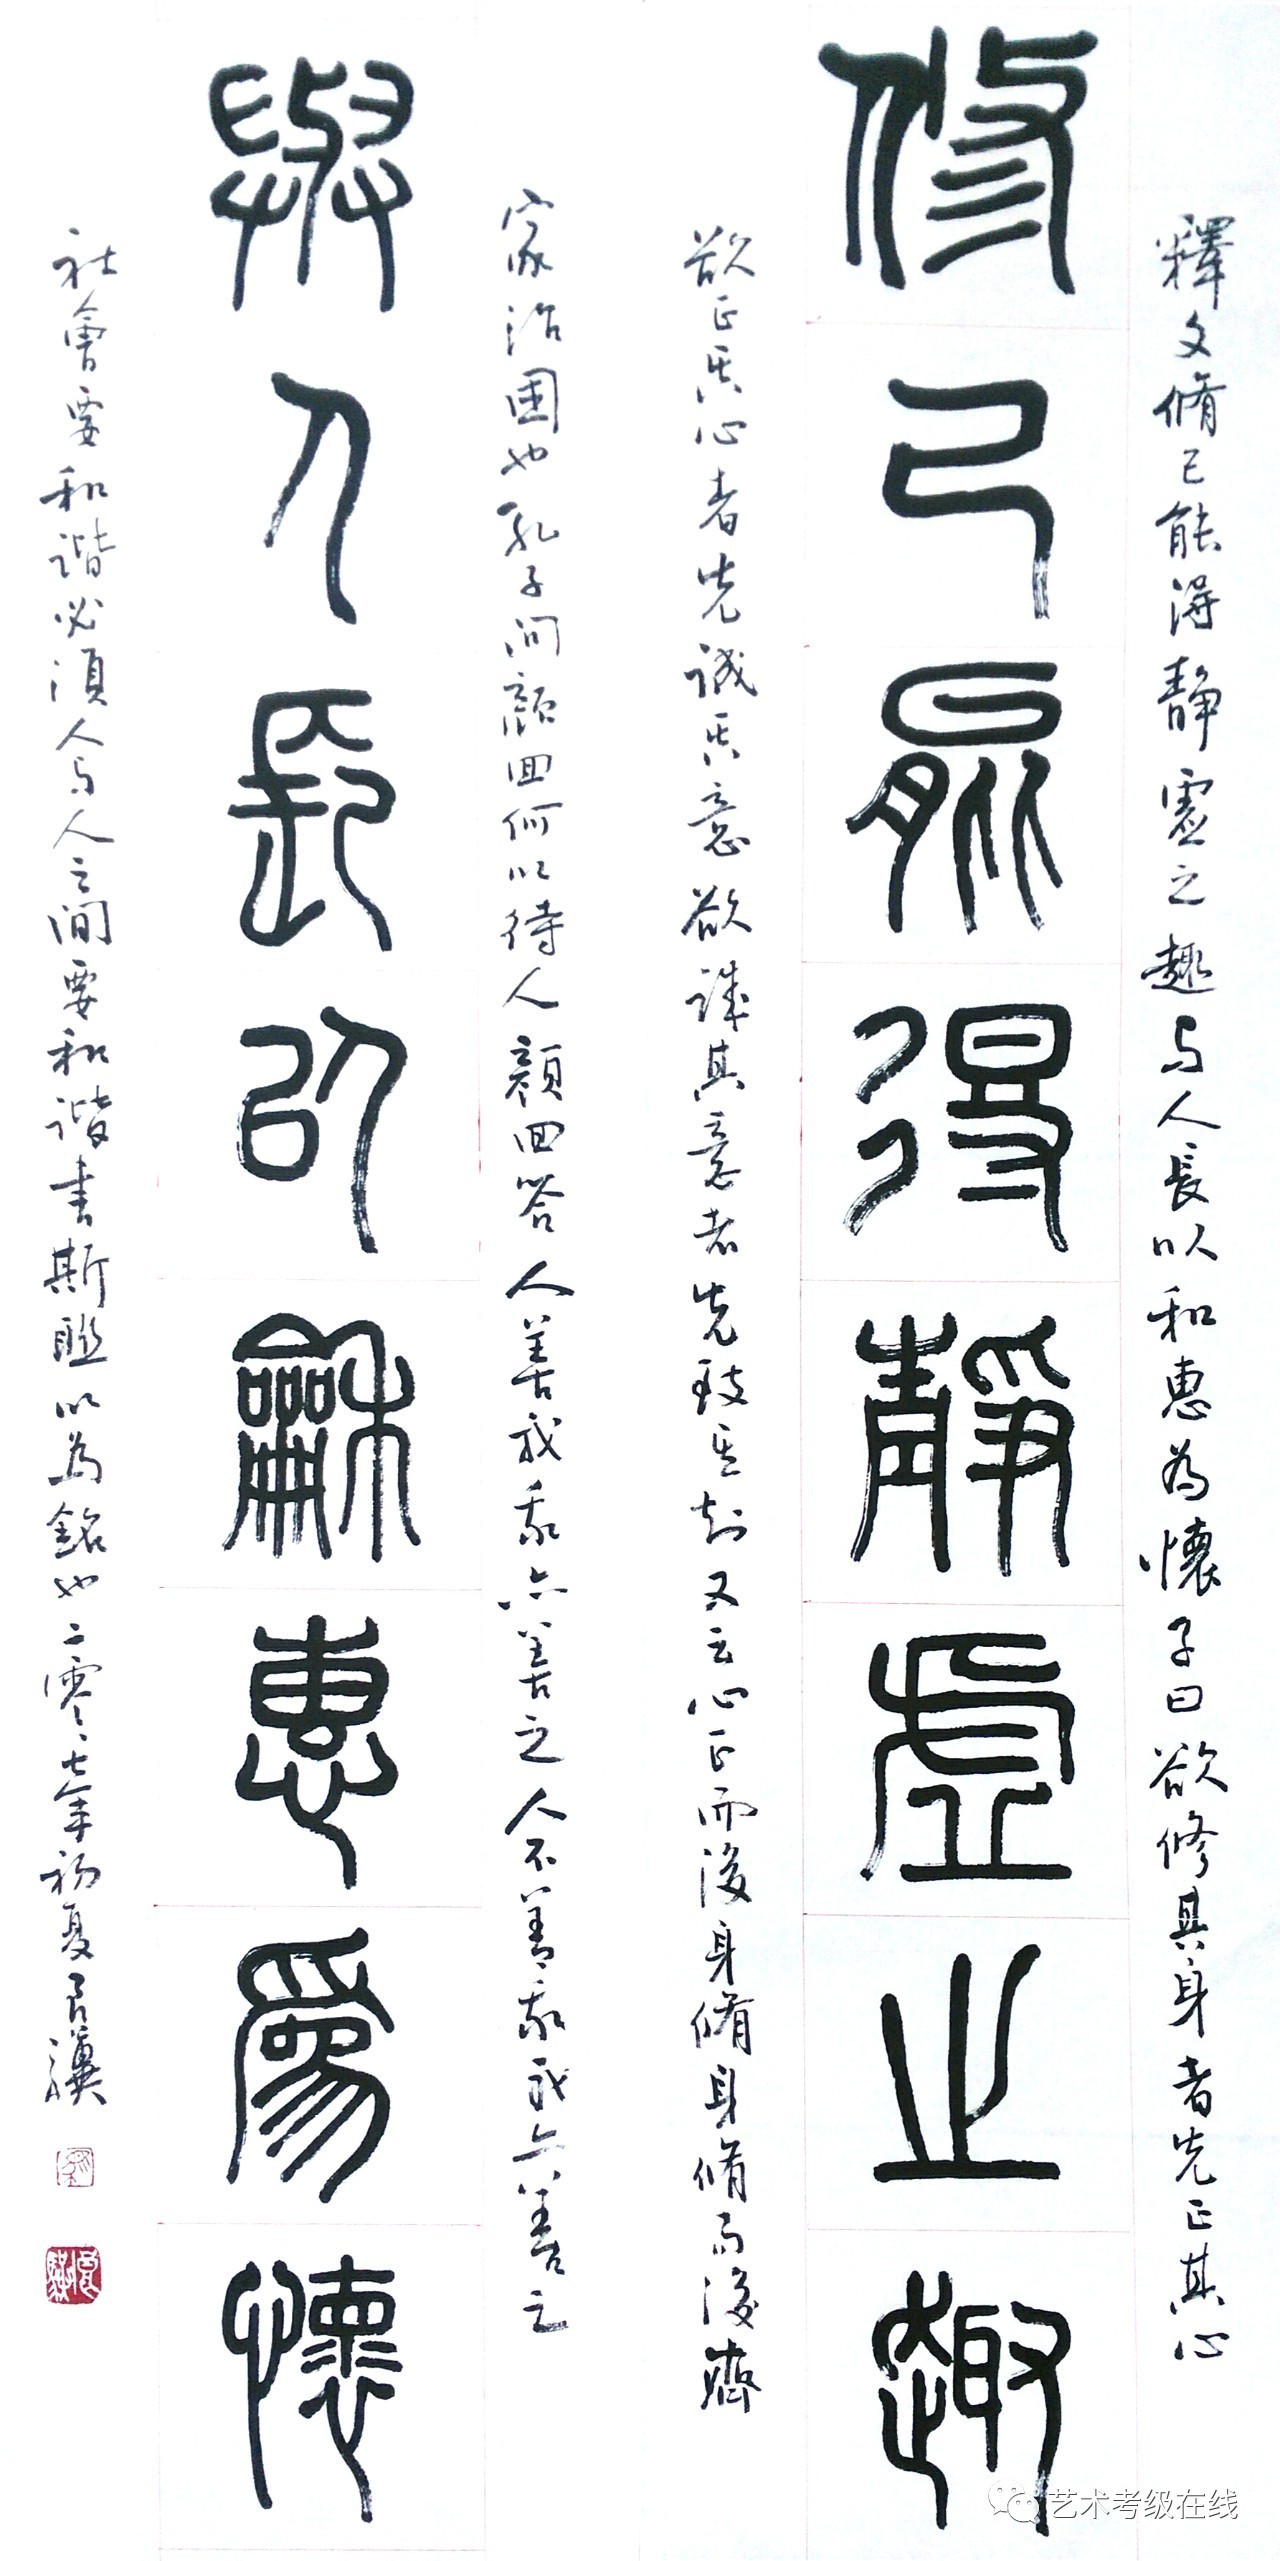 釋文脩己能得靜虛之趣与人長以和惠为懷子曰欲修其身者先正其心
修己能得靜虛止趣
欲正其心者先诚其意欲诚其意者先致其知又云心正而後身脩身脩而後齊
家治国也孔子问颜回何以待人颜回答人善我我亦善之人不善我我亦善之
與人長以龢惠為懷
社會要和谐必須人与人之间要和谐书斯聯以為銘也二零一七年初夏居漢
艺术考级在线